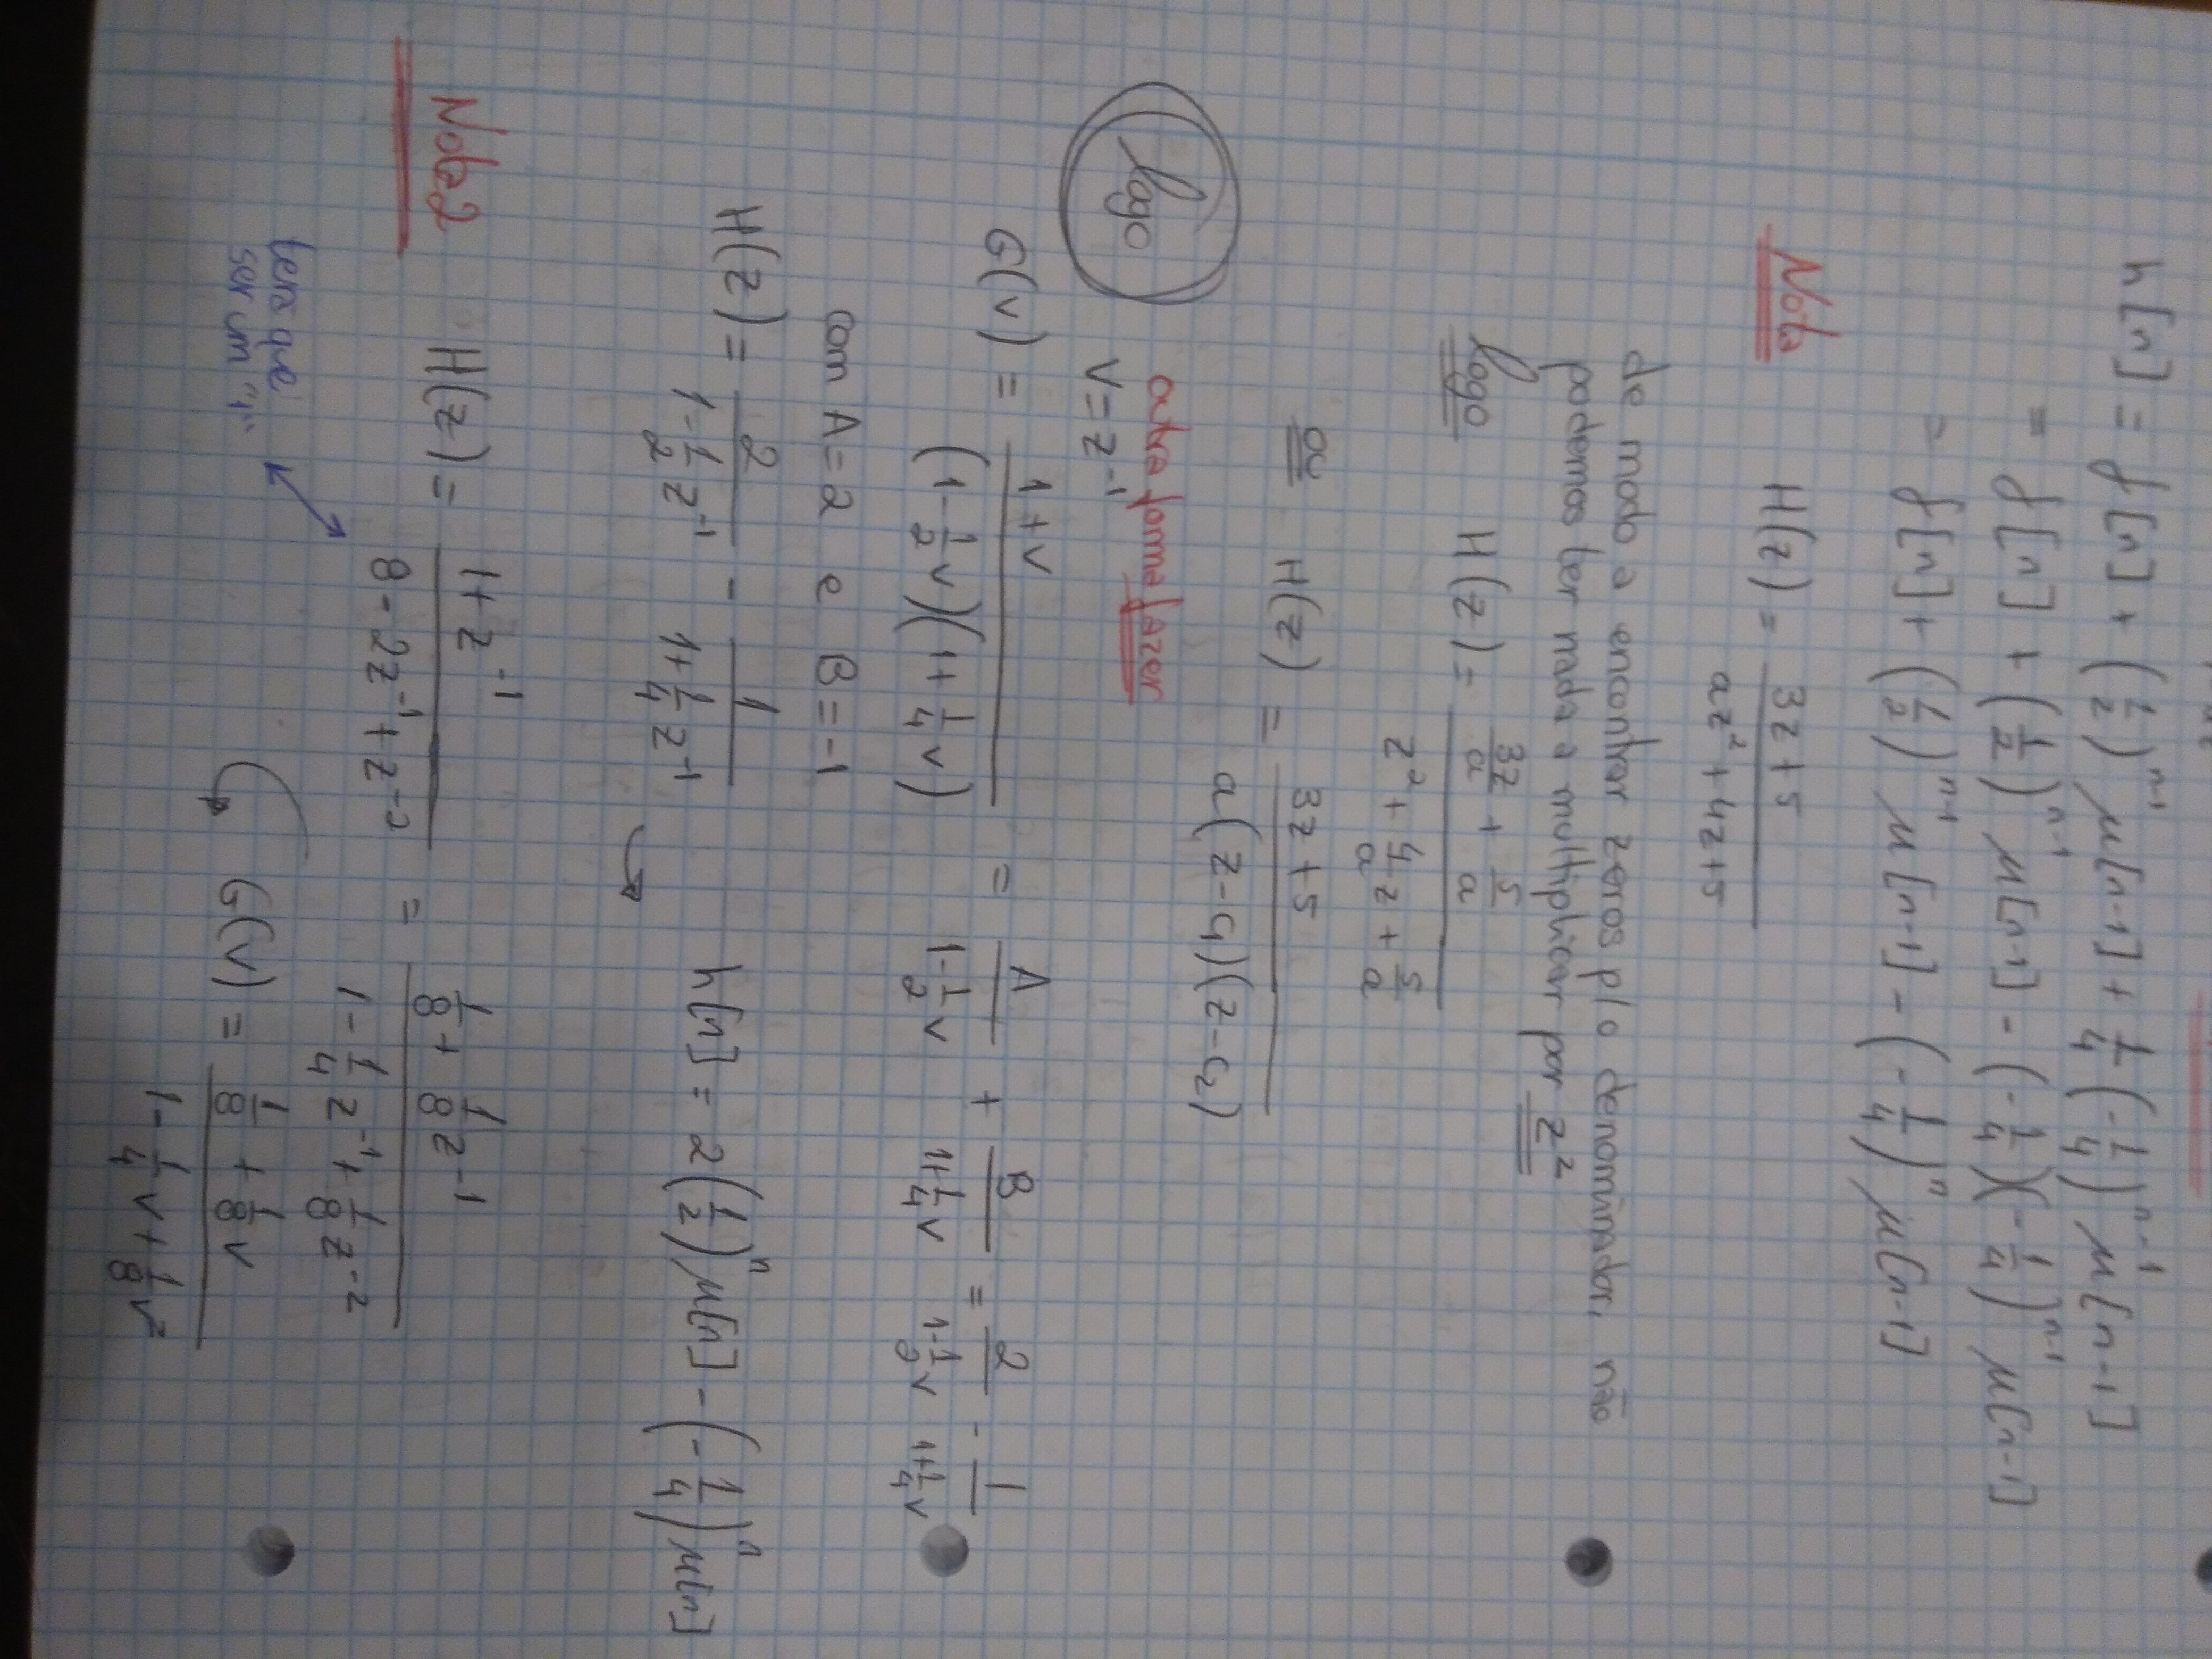 h[n] = δ[n] + (1/2)^(n-1) μ[n-1] + 1/4 (-1/4)^(n-1) μ[n-1]
= δ[n] + (1/2)^(n-1) μ[n-1] - (-1/4)(-1/4)^(n-1) μ[n-1]
= δ[n] + (1/2)^(n-1) μ[n-1] - (-1/4)^n μ[n-1]
Nota H(z) = (3z+5)/(az²+4z+5)
de modo a encontrar zeros p/o denominador, não
podemos ter nada a multiplicar por z²
logo H(z) = (3z/a + 5/a)/(z² + 4/a z + 5/a)
ou H(z) = (3z+5)/(a(z-c₁)(z-c₂))
logo outra forma fazer
V = z⁻¹
G(v) = (1+v)/((1-1/2 v)(1+1/4 v)) = A/(1-1/2 v) + B/(1+1/4 v) = 2/(1-1/2 v) - 1/(1+1/4 v)
com A=2 e B=-1
H(z) = 2/(1-1/2 z⁻¹) - 1/(1+1/4 z⁻¹) → h[n] = 2(1/2)^n μ[n] - (-1/4)^n μ[n]
Nota 2 H(z) = (1+z⁻¹)/(8-2z⁻¹+z⁻²) = (1/8 + 1/8 z⁻¹)/(1-1/4 z⁻¹+1/8 z⁻²)
tem que
ser um "1"
G(v) = (1/8 + 1/8 v)/(1-1/4 v+1/8 v²)